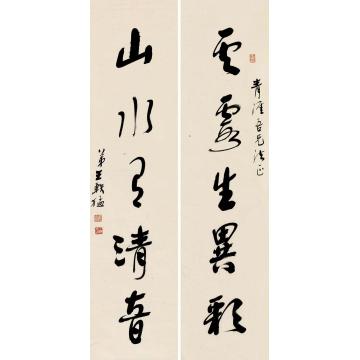 云霞生異彩
青吾兄法正
山水有清音
弟王軼猛